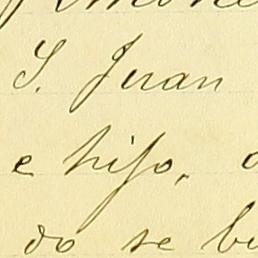 S. Juan
e hijo,
do se